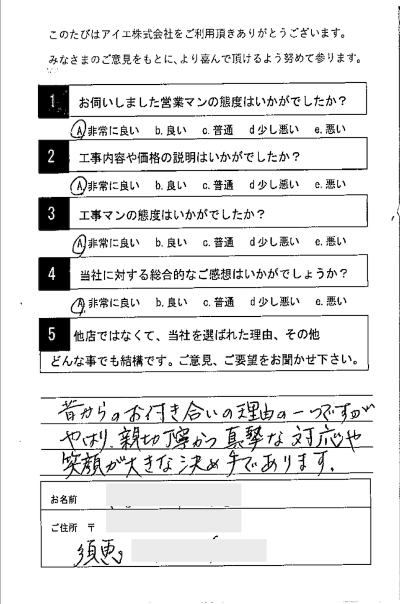 このたびはアイエ株式会社をご利用頂きありがとうございます。
みなさまのご意見をもとに、より喜んで頂けるよう努めて参ります。
1 お伺いしました営業マンの態度はいかがでしたか？
A.非常に良い b.良い c.普通 d少し悪い e.悪い
2 工事内容や価格の説明はいかがでしたか？
A.非常に良い b.良い c.普通 d少し悪い e.悪い
3 工事マンの態度はいかがでしたか？
A.非常に良い b.良い c.普通 d少し悪い e.悪い
4 当社に対する総合的なご感想はいかがでしょうか？
A.非常に良い b.良い c.普通 d少し悪い e.悪い
5 他店ではなくて、当社を選ばれた理由、その他
どんな事でも結構です。ご意見、ご要望をお聞かせ下さい。
昔からのお付き合いの理由の一つですが
やはり、親切丁寧かつ真摯な対応や
笑顔が大きな決め手であります。
お名前
ご住所 〒
須恵